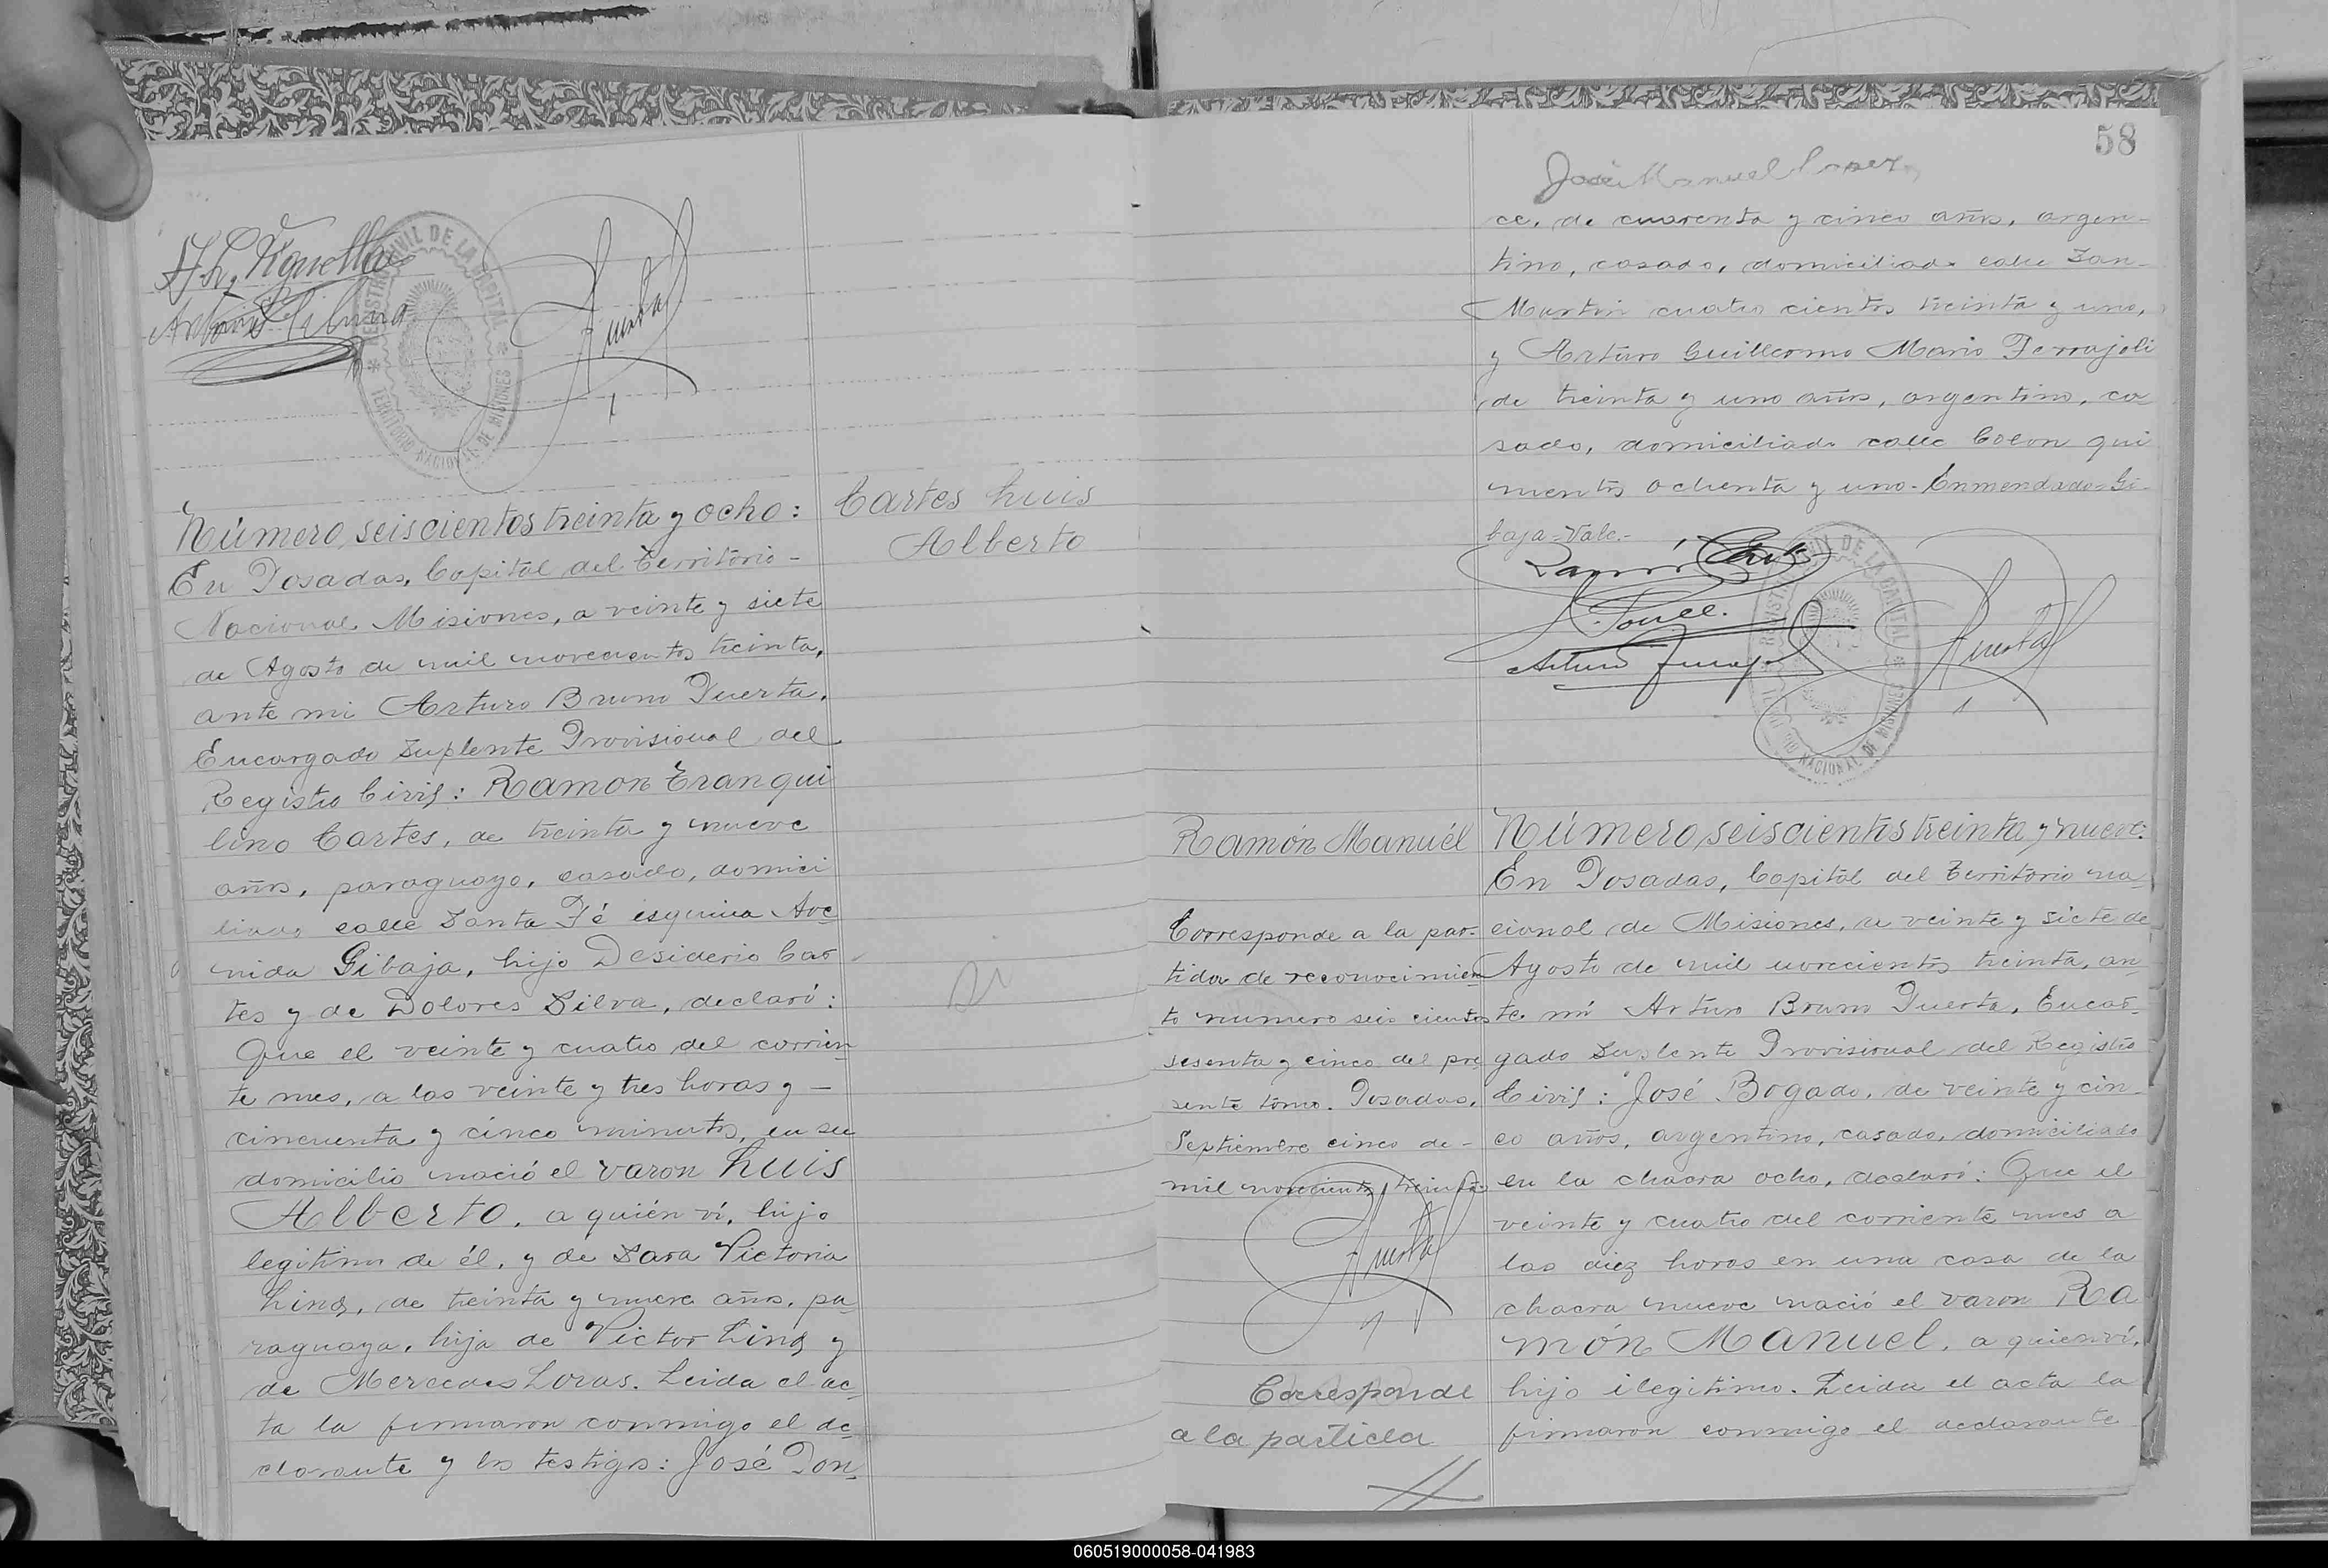 Antonio
REGISTRO CIVIL DE LA CAPITAL
TERRITORIO NACIONAL DE MISIONES
Puerta
Número seiscientos treinta y ocho:
En Posadas, Capital del Territorio -
Nacional Misiones, a veinte y siete
de Agosto de mil novecientos treinta,
ante mi Arturo Bruno Puerta,
Encargado Suplente Provisional del
Registro Civil: Ramon Tranqui
lino Cartes, de treinta y nueve
años, paraguayo, casado, domici
liado calle Santa Fé esquina Ave
nida Gibaja, hijo Desiderio Car-
tes y de Dolores Silva, declaró:
Que el veinte y cuatro del corrien
te mes, a las veinte y tres horas y -
cincuenta y cinco minutos, en su
domicilio nació el varon Luis
Alberto, a quién ví, hijo
legitimo de él, y de Sara Victoria
Lind, de treinta y nueve años, pa
raguaya, hija de Victor Lind y
de Mercedes Loras. Leida el ac
ta la firmaron conmigo el de
clarante y los testigos: José Pon
Cartes Luis
Alberto
58
José Manuel Lopez
ce, de cuarenta y cinco años, argen-
tino, casado, domiciliado calle San-
Martin cuatro cientos treinta y uno,
y Arturo Guillermo Mario Ferrajoli
de treinta y uno años, argentino, ca
sado, domiciliado calle Colon qui
nientos ochenta y uno - Enmendado - Gi-
baja - Vale.-
Ramón Cartes
J. Ponce.
Arturo
REGISTRO CIVIL DE LA CAPITAL
TERRITORIO NACIONAL DE MISIONES
Puerta
Ramón Manuél
Corresponde a la par-
tida de reconocimien
to numero seis cientos
sesenta y cinco del pre
sente tomo. Posadas,
Septiembre cinco de -
mil novecientos treinta
Puerta
Corresponde
a la partida
Número seiscientos treinta y nueve:
En Posadas, Capital del Territorio na
cional de Misiones, a veinte y siete de
Agosto de mil novecientos treinta, an
te mí Arturo Bruno Puerta, Encar-
gado Suplente Provisional del Registro
Civil: José Bogado, de veinte y cin-
co años, argentino, casado, domiciliado
en la chacra ocho, declaró: Que el
veinte y cuatro del corriente mes a
las diez horas en una casa de la
chacra nueve nació el varon Ra
món Manuel, a quien ví,
hijo ilegitimo. Leida el acta la
firmaron conmigo el declarante
060519000058-041983